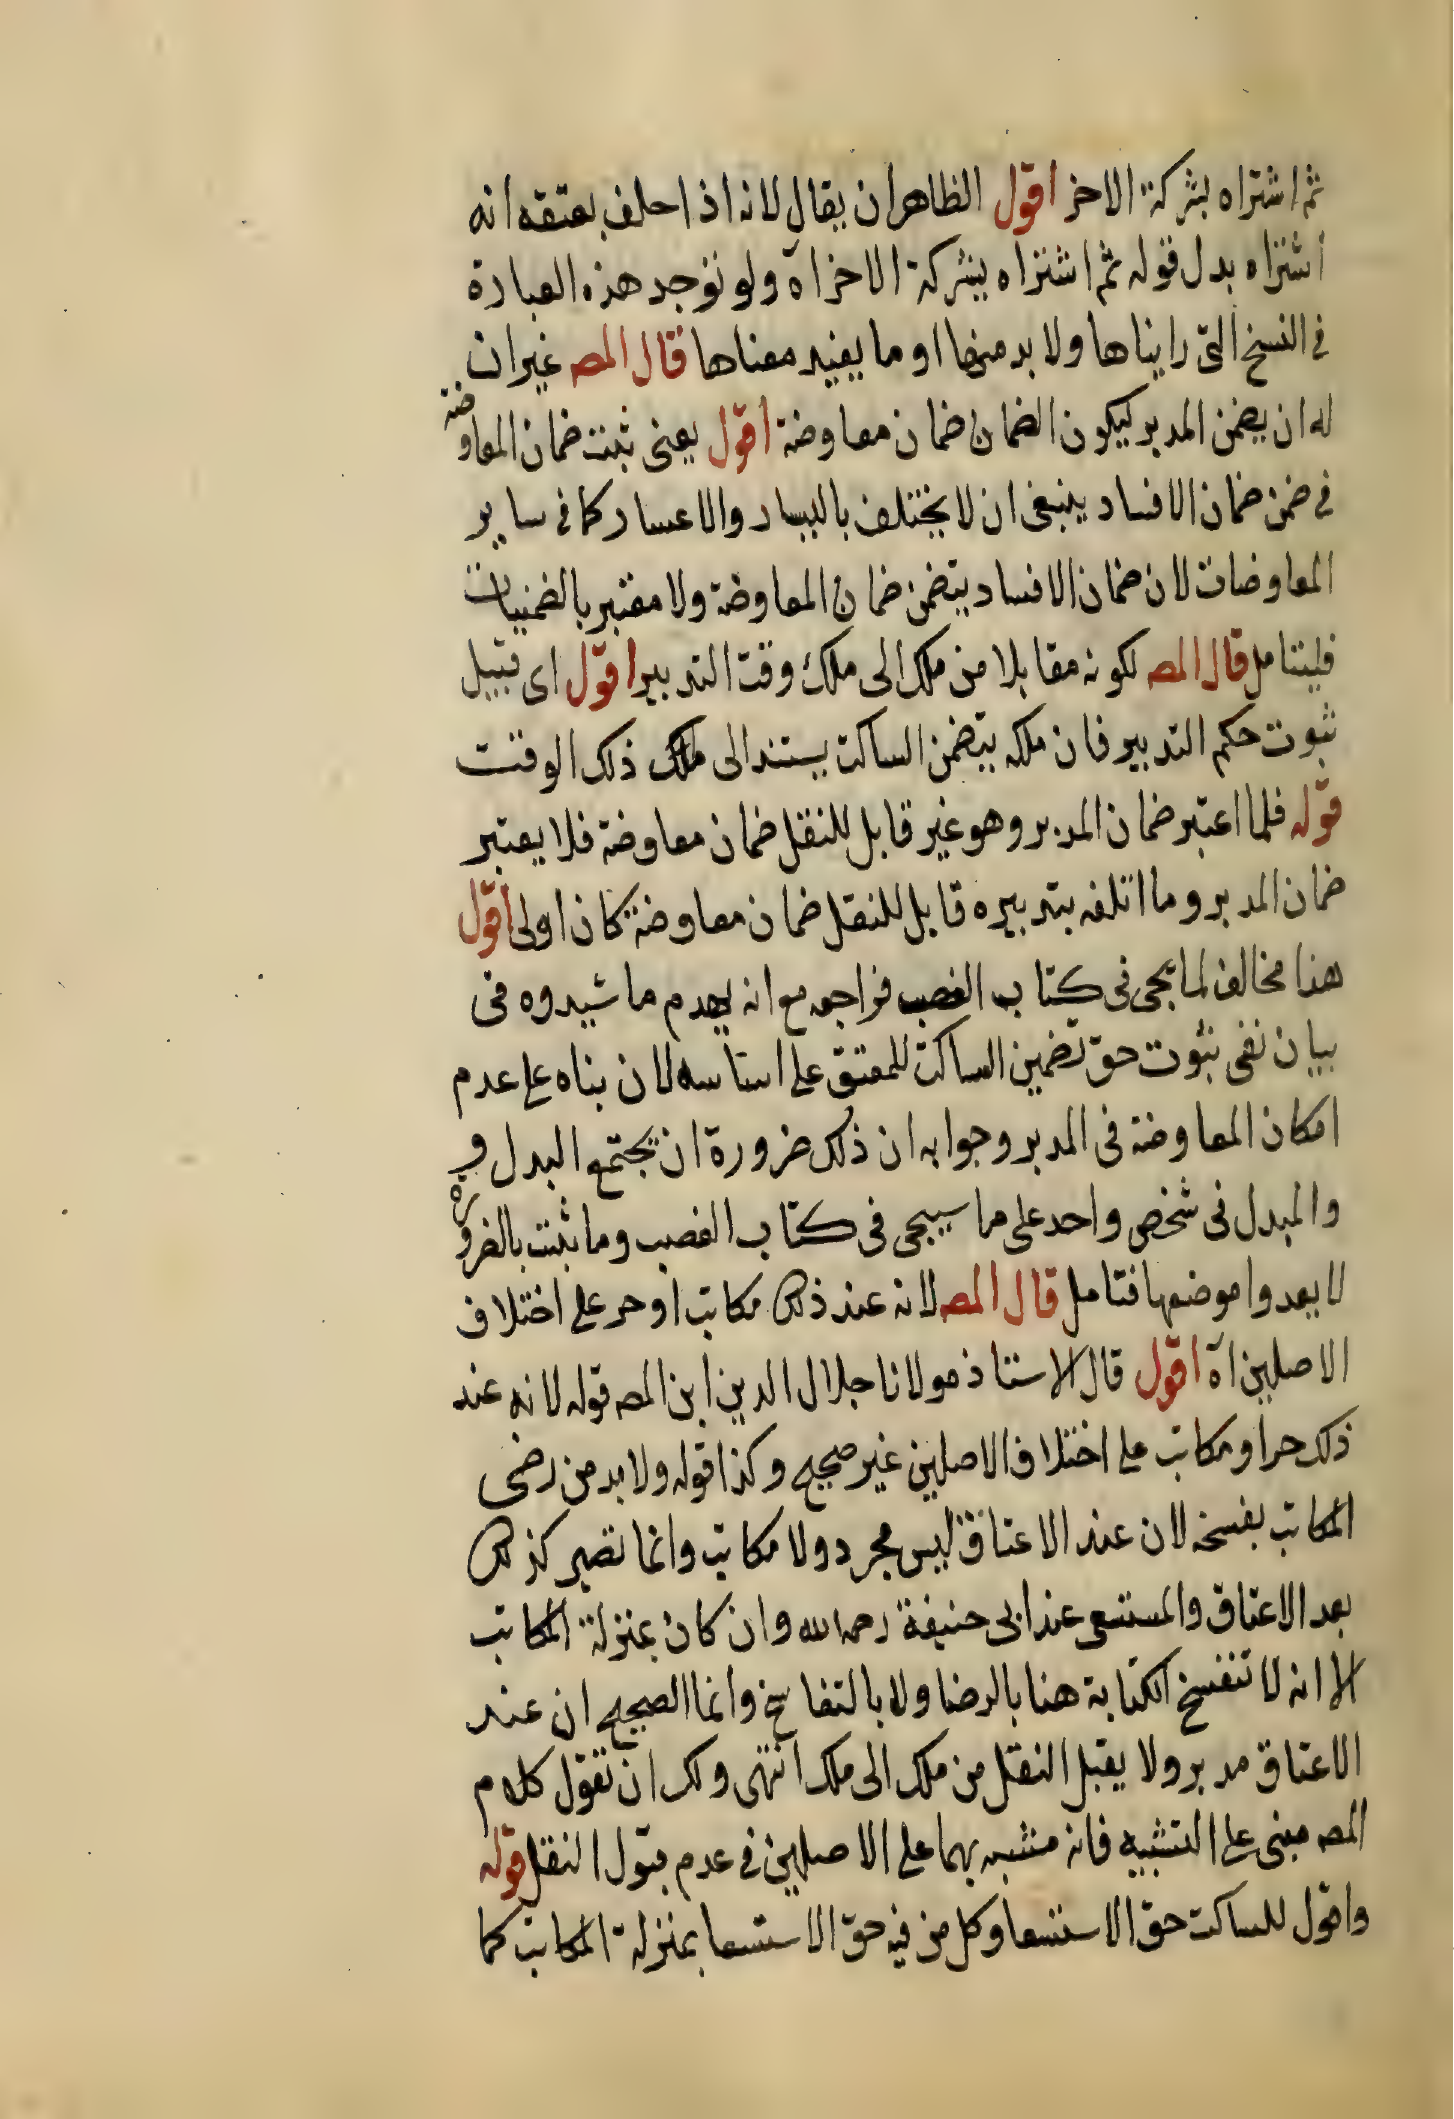 ثم اشتراه بشركة الاخر اقول الظاهر ان يقال لانه اذا حلف بعتقه انه
اشتراه بدل قوله ثم اشتراه بشركة الاخر اه ولو توجد هذه العبارة
فى النسخ التى رايناها ولا بد منها او ما يفيد معناها قال المص غير ان
له ان يضمن المدبر ليكون الضمان ضمان معاوضة اقول يعنى ثبت ضمان المعاوضة
فى ضمن ضمان الافساد ينبغى ان لا يختلف باليسار والاعسار كما فى ساير
المعاوضات لان ضمان الافساد يتضمن ضمان المعاوضة ولا معتبر بالضمنيات
فليتامل قال المص لكونه مقابلا من ملك الى ملك وقت التدبير اقول اى قبيل
ثبوت حكم التدبير فان ملكه بتضمن الساكت يستند الى ملك ذلك الوقت
قوله فلما اعتبر ضمان المدبر وهو غير قابل للنقل ضمان معاوضة فلا يعتبر
ضمان المدبر وما اتلفه بتدبيره قابل للنقل ضمان معاوضة كان اولى اقول
هذا مخالف لما يجى فى كتاب الغصب فراجعه مع انه يهدم ما شيدوه فى
بيان نفى ثبوت حق تضمين الساكت للمعتق على استاسه لان بناه على عدم
امكان المعاوضة فى المدبر وجوابه ان ذلك ضرورة ان يجتمع البدل و
والمبدل فى شخص واحد على ما سيجى فى كتاب الغصب وما ثبت بالضرورة
لا يعدوا موضعها فتامل قال المص لانه عند ذلك مكاتب او حر على اختلاف
الاصلين اه اقول قال الاستاذ مولانا جلال الدين ابن المص قوله لانه عند
ذلك حر او مكاتب على اختلاف الاصلين غير صحيح وكذا قوله ولا بد من رضى
المكاتب بفسخه لان عند الاعتاق ليس مجرد ولا مكاتب وانما تصير كذلك
بعد الاعتاق والمستسعى عند ابى حنيفة رحمه الله وان كان بمنزلة المكاتب
الا انه لا تنفسخ الكتابة هنا بالرضا ولا بالتفاسخ وانما الصحيح ان عند
الاعتاق مدبر ولا يقبل النقل من ملك الى ملك انتهى ولك ان تقول كلام
المص مبنى على التشبيه فانه مشبه بهما على الاصلين فى عدم قبول النقل قوله
واقول للساكت حق الاستسعا وكل من فيه حق الاستسعا بمنزلة المكاتب كما